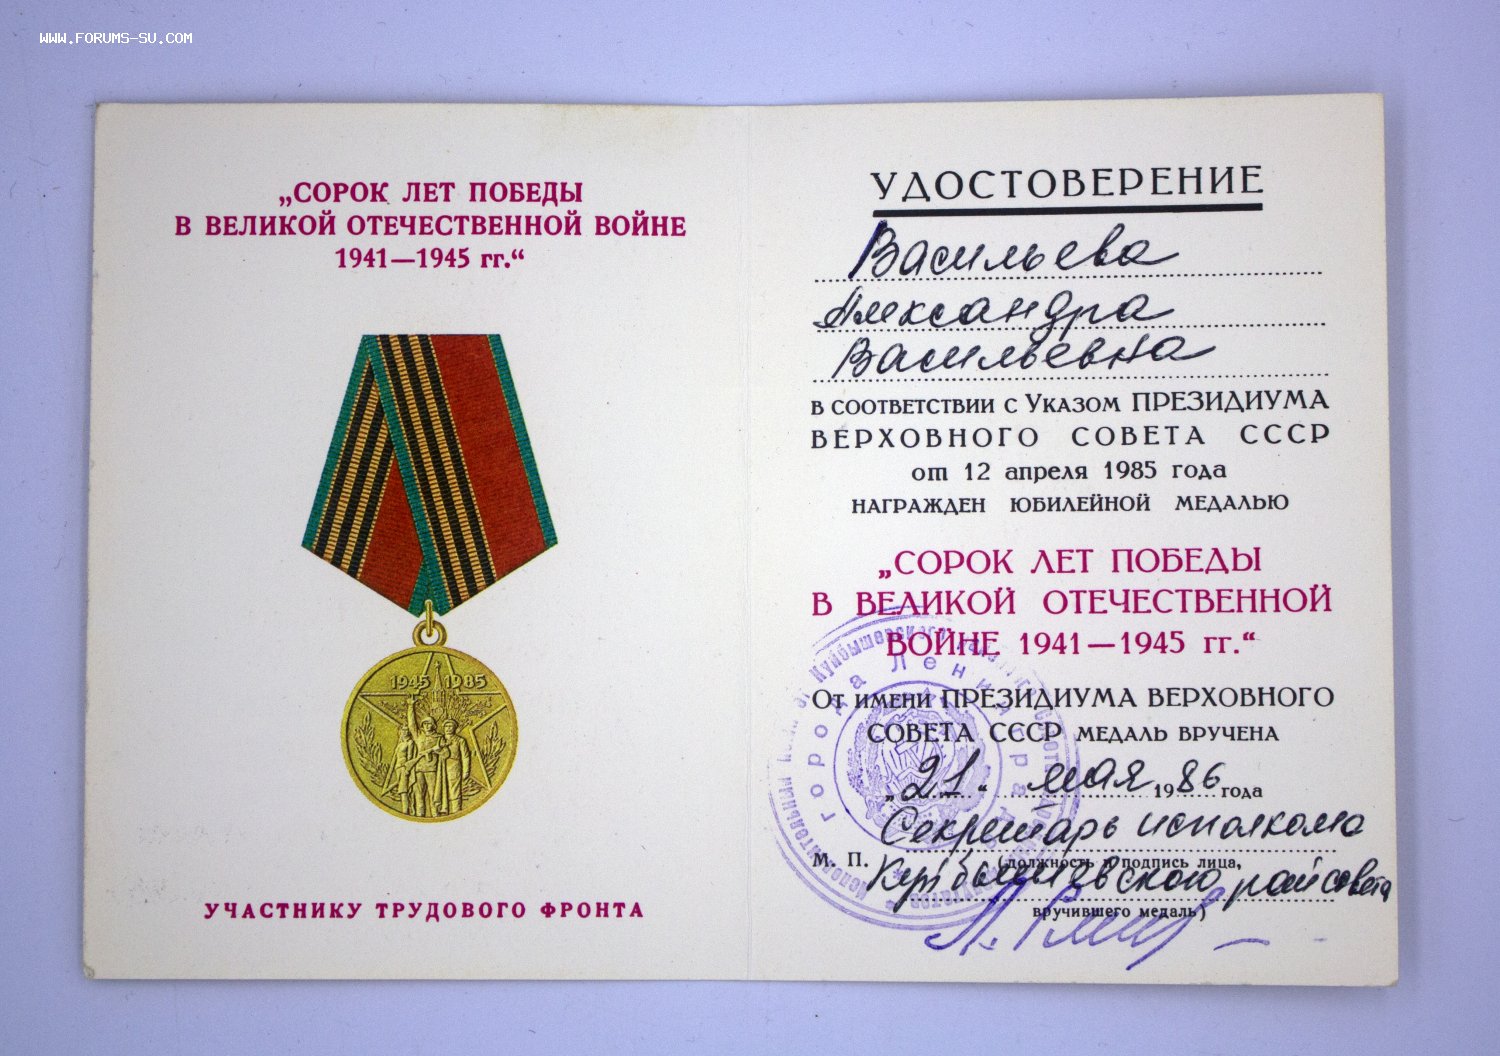 WWW.FORUMS-SU.COM
„СОРОК ЛЕТ ПОБЕДЫ
В ВЕЛИКОЙ ОТЕЧЕСТВЕННОЙ ВОЙНЕ
1941—1945 гг.“
1945 1985
УЧАСТНИКУ ТРУДОВОГО ФРОНТА
УДОСТОВЕРЕНИЕ
Васильева
Александра
Васильевна
в соответствии с Указом ПРЕЗИДИУМА
ВЕРХОВНОГО СОВЕТА СССР
от 12 апреля 1985 года
НАГРАЖДЕН ЮБИЛЕЙНОЙ МЕДАЛЬЮ
„СОРОК ЛЕТ ПОБЕДЫ
В ВЕЛИКОЙ ОТЕЧЕСТВЕННОЙ
ВОЙНЕ 1941—1945 гг.“
От имени ПРЕЗИДИУМА ВЕРХОВНОГО
СОВЕТА СССР МЕДАЛЬ ВРУЧЕНА
„21“ мая 1986 года
Секретарь исполкома
М. П. (должность и подпись лица,
Куйбышевского райсовета
вручившего медаль)
города Ленинграда